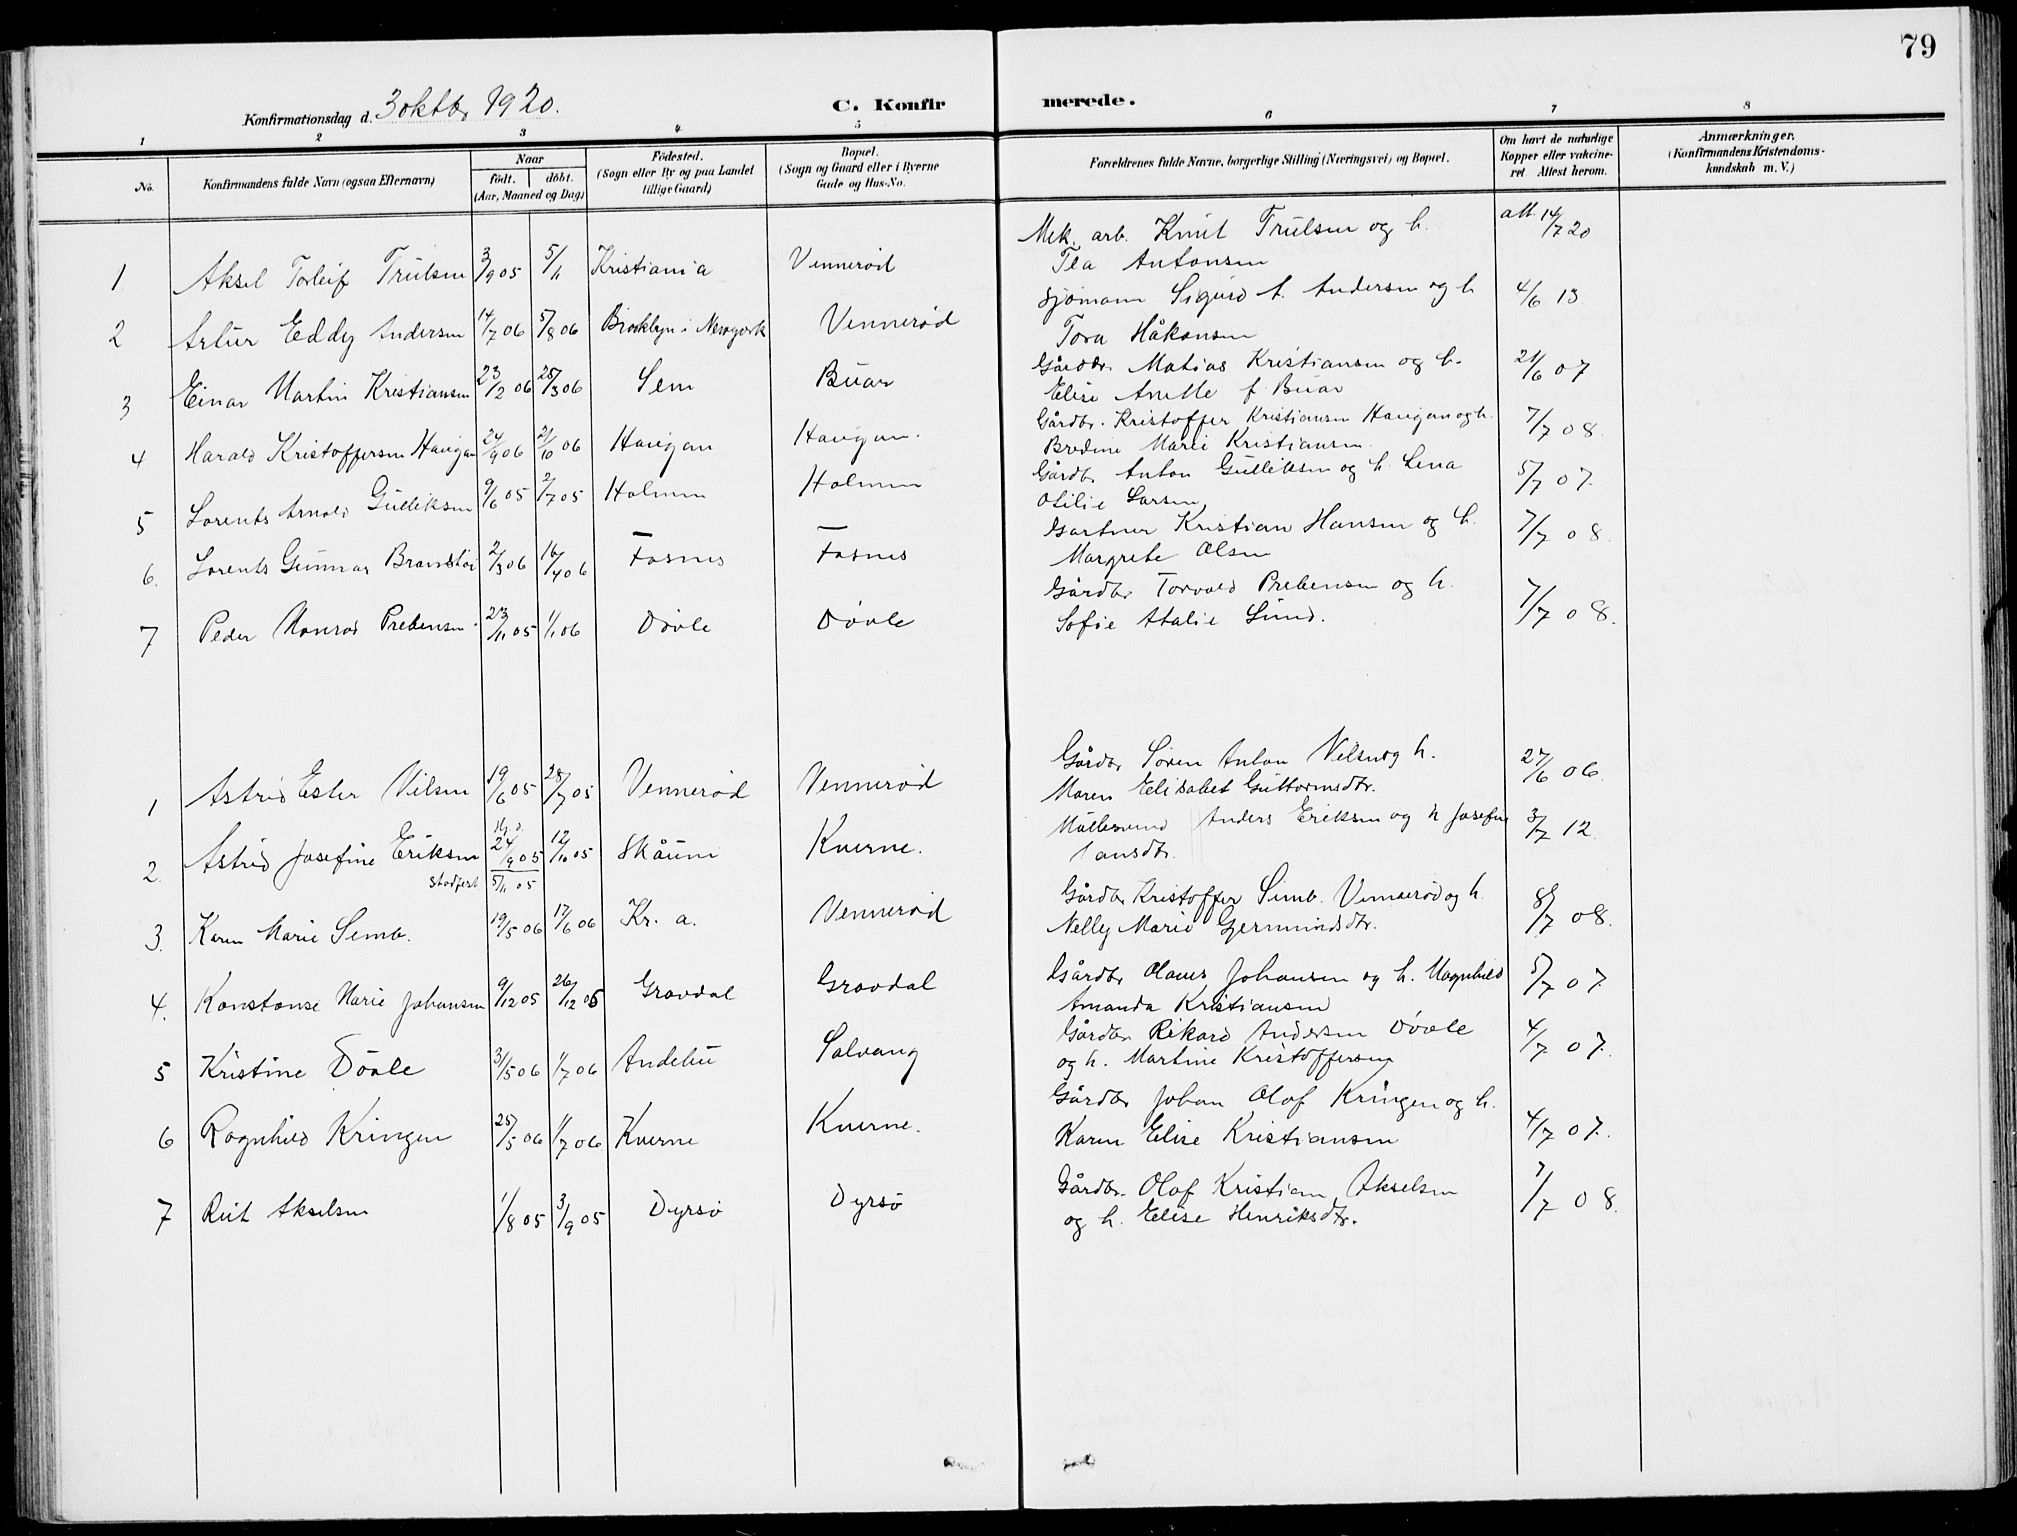 79
Konfirmationsdag d. 3 oktbr 1920.
C. Konfirmerede.
1 2 3 4 5 6 7 8
No.
Konfirmandens fulde Navn (ogsaa Efternavn)
Naar
født. døbt.
(Aar, Maaned og Dag)
Fødested.
(Sogn eller By og paa Landet
tillige Gaard)
Bopæl.
(Sogn og Gaard eller i Byerne
Gade og Hus-No.
Forældrenes fulde Navne, borgerlige Stilling (Næringsvei) og Bopæl.
Om havt de naturlige
Kopper eller vakcine-
ret. Attest herom.
Anmærkninger.
(Konfirmandens Kristendoms-
kundskab m. V.)
1 Aksel Torleif Trulsen 3/9 05 5/11 Kristiania Vennerød Mek. arb. Knut Trulsen og h. att. 14/7 20
Antonsen
2 Artur Eddy Andersen 14/7 06 5/8 06 Brooklyn i Newyork Vennerød Sjømann Sigurd A. Andersen og h 4/6 13
Tora Håkonsen
3 Einar Martin Kristiansen 23/2 06 25/3 06 Sem Buar Gårdbr. Matias Kristiansen og h. 21/6 07
Elise Anette f. Buar
4 Harald Kristoffersen Haugan 24/9 06 21/10 06 Haugan Haugan. Gårdbr. Kristoffer Kristiansen Haugan og h. 7/7 08.
Bredine Marie Kristiansen.
5 Lorents Arnold Gulliksen 9/6 05 2/7 05 Holmen Holmen Gårdb. Anton Gulliksen og h. Lena 5/7 07.
Otilie Larsen
6. Lorents Gunnar 2/3 06 16/4 06 Fosnes Fosnes Gartner Kristian Hansen og h. 7/7 08.
Margrete Olsen
7 Peder Konrad Prebensen. 23/11 05 1/1 06 Døvle Døvle Gårdbr Torvald Prebensen og h. 7/7 08.
Sofie Atalie Lund.
1 Astrid Ester Nilsen 19/6 05 28/7 05 Vennerød Vennerød Gårdbr Søren Anton Nilsen og h. 27/6 06.
Maren Elisabet Guttormsdtr.
2. Astrid Josefine Eriksen 24/9 05 12/10 05 Skåum Kverne. Anders Eriksen og h Josefine 3/7 12.
stadfest 5/11 05
3. Karen Marie Semb. 19/5 06 17/6 06 Kr. a. Vennerød Gårdbr Kristoffer Semb. Vennerød og h. 8/7 08.
Nelly Marie Gjermundsdtr.
4. Konstanse Marie Johansen 9/12 05 26/12 05 Gravdal Gravdal Gårdbr Olaus Johansen og h. Magnhild 5/7 07.
Amanda Kristiansen
5 Kristine Døvle 3/5 06 1/7 06 Andebu Solvang Gårdbr Rikard Andersen Døvle 4/7 07.
og h. Martine Kristoffersen
6 Ragnhild Kringen 25/5 06 1/7 06 Kverne Kverne. Gårdbr Johan Olaf Kringen og h. 4/7 07.
Karen Elise Kristiansen
7 Rut Akselsen 1/8 05 3/9 05 Dyrsø Dyrsø Gårdbr. Olaf Kristian Akselsen 7/7 08.
og h. Elise Henriksdtr.